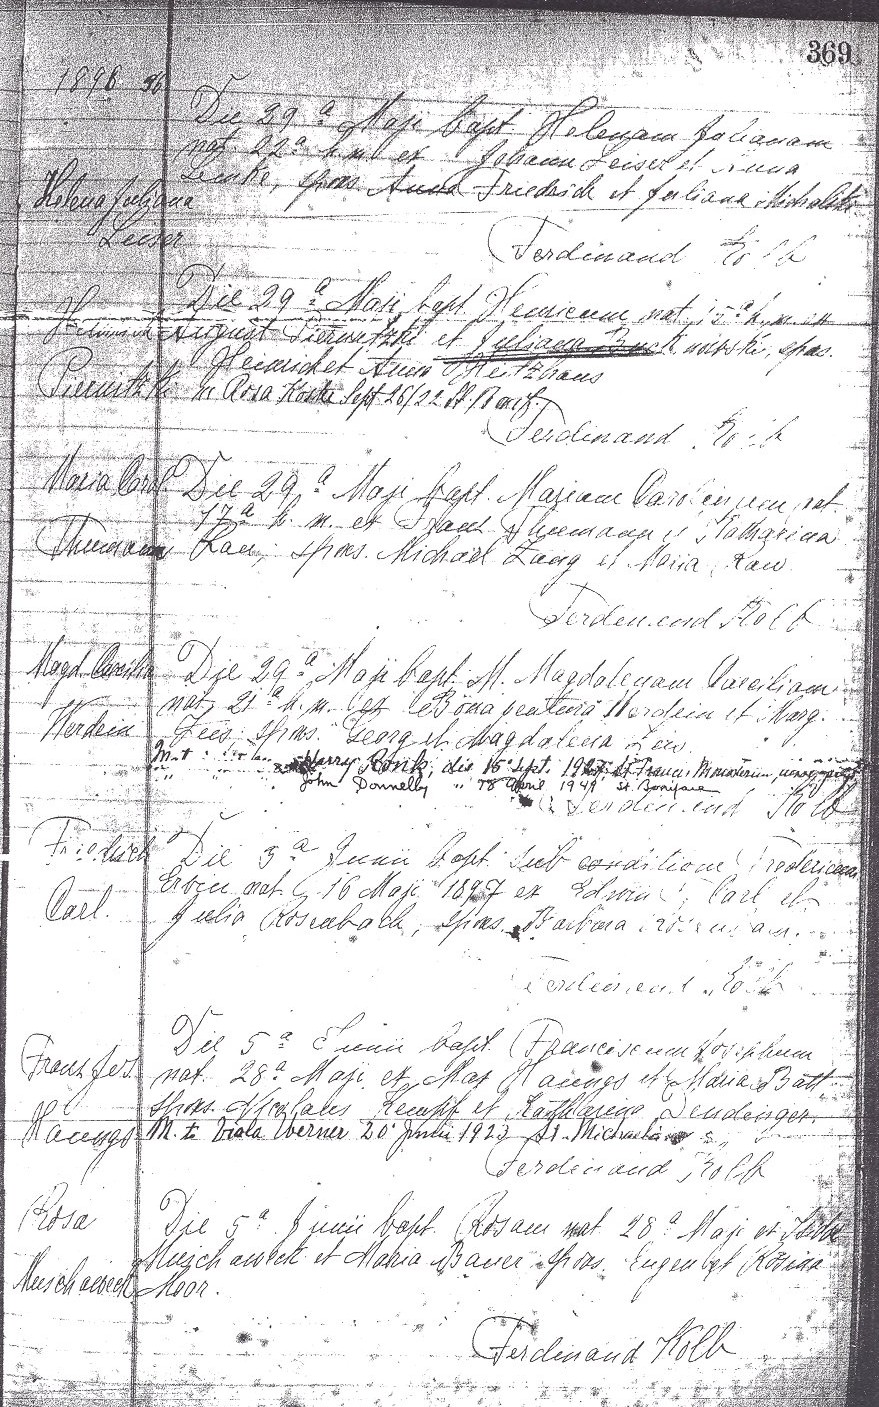 369
1898
Die 29ª Maji bapt. Helenam Julianam
nat. 22ª h. m. ex Johann Leiser et Anna
Lemke, spons. Anna Friedrich et Juliana Michalski
Helena Juliana
Leiser
Ferdinand Kolb
Die 29ª Maji bapt. Henricum nat. 15ª h. m. ex
August Pierwitzki et Juliana Buck nowski, spons.
Heinrich et Anna
Heinrich
Pierwitzki
Rosa Koske Sept 26/22 St. Bonif.
Ferdinand Kolb
Maria Carol.
Die 29ª Maji bapt. Mariam Carolinam nat.
17ª h. m. ex Franz Thumann et Katharina
Thumann
Rau, spons. Michael Lang et Maria Rau
Ferdinand Kolb
Magd. Caecilia
Die 29ª Maji bapt. M. Magdalenam Caeciliam
nat. 21ª h. m. ex Bonaventura Werdein et Marg.
Werdein
Zeis spons. Georg et Magdalena Zeis.
Harry Ronk, die 16 Sept. 1925 St Francis
John Donnelly " 18 April 1949 St. Boniface
Ferdinand Kolb
Friedrich
Die 3ª Junii bapt. sub conditione Fredericum
Erwin nat. 16 Maji 1897 ex Edwin Carl et
Carl.
Julia Rosenbach, spons. Barbara
Ferdinand Kolb
Die 5ª Junii bapt. Franciscum Josephum
Franz Jos.
nat. 28ª Maji ex Max Haungs et Maria Batt
spons. Nicolaus Kempf et Katharina Dendinger.
Haungs
M. t. Viola Werner 20 Junii 1923 St. Michaelis
Ferdinand Kolb
Rosa
Die 5ª Junii bapt. Rosam nat. 28ª Maji ex
Muschaweck et Maria Bauer spons. Eugen et Rosina
Muschaweck
Moor.
Ferdinand Kolb